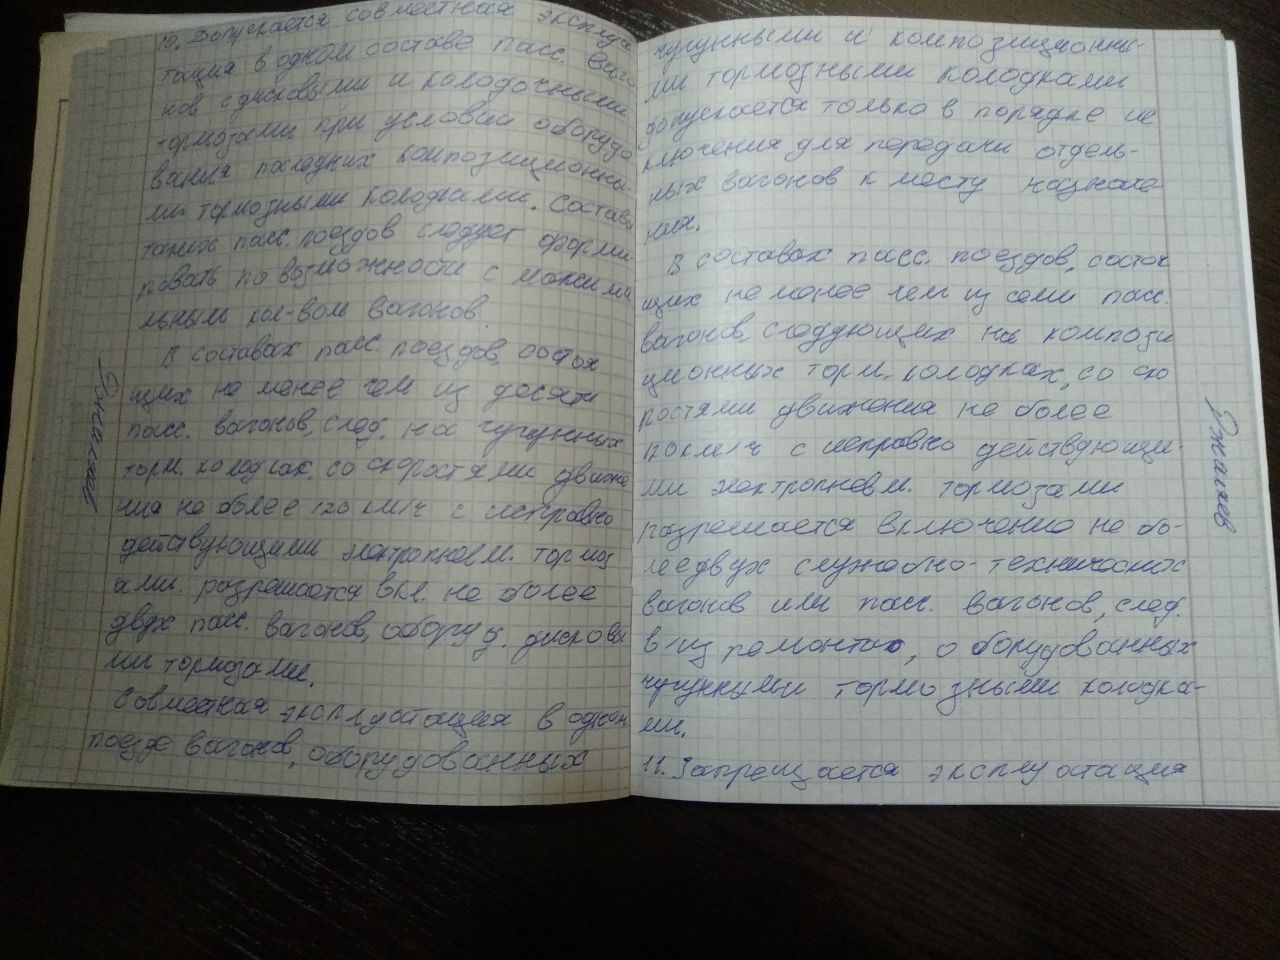 10. Допускается совместная эксплуа
тация в одном составе пасс. ваго
нов с дисковыми и колодочными
тормозами при условии оборудо
вания последних композиционны-
ми тормозными колодками. Составы
таких пасс. поездов следует форми-
ровать по возможности с максима
льным кол-вом вагонов.
В составах пасс. поездов, состоя
щих не менее чем из десяти
пасс. вагонов, след. на чугунных
торм. колодках, со скоростями движе
ния не более 120 км/ч с исправно
действующими электропневм. тормоз
ами. разрешается вкл. не более
двух пасс. вагонов, оборуд. дисковы
ми тормозами.
Совместная эксплуатация в одном
поезде вагонов, оборудованных
чугунными и композиционны-
ми тормозными колодками
допускается только в порядке ис
ключения для передачи отдель-
ных вагонов к месту назначе
ния.
В составах пасс. поездов, состоя
щих не менее чем из семи пасс.
вагонов, следующих на компози
ционных торм. колодках, со ско
ростями движения не более
км/ч с исправно действующи-
ми электропневм. тормозами
разрешается включение не бо-
лее двух служебно-технических
вагонов или пасс. вагонов, след.
в-из ремонта, оборудованных
чугунными тормозными колодка-
ми.
11. Запрещается эксплуатация